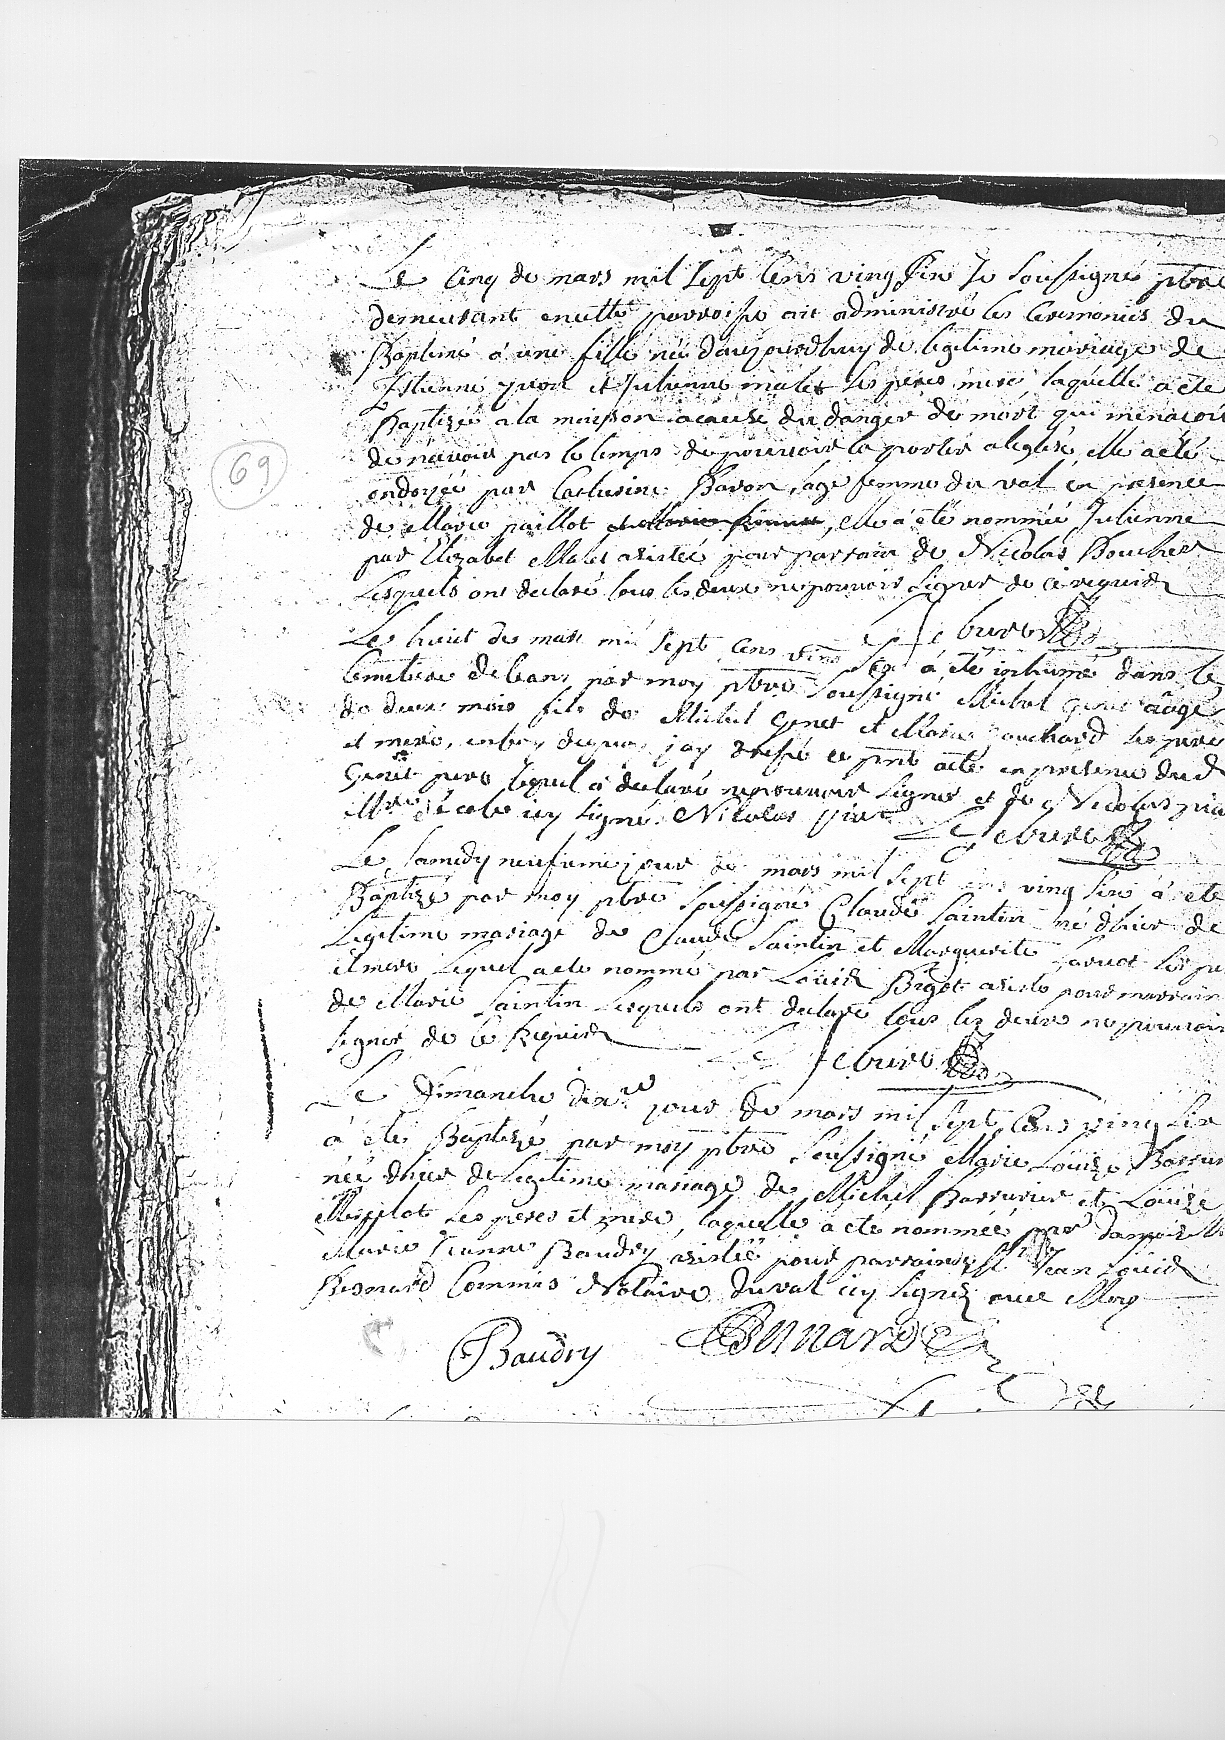 Le Cinq de mars mil sept Cens ving six Je soussigné ptre
demeurant en cette parroisse ait administré les Ceremonies du
Baptême à une fille née d'aujourdhuy de legitime mariage de
Estienne et Julienne malet les peres mere, laquelle a été
Baptizée a la maison acause du danger de mort qui menacoit
de n'avoir pas le temps de pouvoir la porter a leglise, elle a été
ondoyée par Catherine Baron, sage femme du val en presence
de Marie paillot, elle a été nommée Julienne
par Elizabet Malet assistée pour parrain de Nicolas Boucher
Lesquels ont declaré tous les deux ne pouvoir signer de ce requis
Le febure
69
Le huit de mars mil sept cens vins six a été inhumé dans le
Cemetiere de ceans par moy ptre soussigné Michel Genet aagé
de deux mois fils de Michel Genet et Marie ouchard les pere
et mere, en foy de quoy j'ay dressé ce pnt acte en presence dud
Genet pere lequel a declaré ne pouvoir signer et de Nicolas
Mtre d'ecole icy signé. Nicolas
Le febure
Le samedy neufieme jour de mars mil sept cens ving six à été
Baptizé par moy ptre soussigné Claude Saintin né d'hier de
Legitime mariage de Claude Saintin et Marguerite les pe
et mere lequel a été nommé par Louis Bigot assisté pour marrain
de Marie Saintin lesquels ont declaré tous les deux ne pouvoir
signer de ce Requis
Le febure
Le Dimanche dixe jour de mars mil sept Cens ving six
à été Baptizé par moy ptre soussigné Marie Louize
née d'hier de legitime mariage de Michel et Louize
les peres et mere, laquelle a été nommée par
Marie Jeanne Baudry assistée pour parrain Jean Louis
Besnard Commis Notaire du val icy signez avec Moy
Baudry Benard